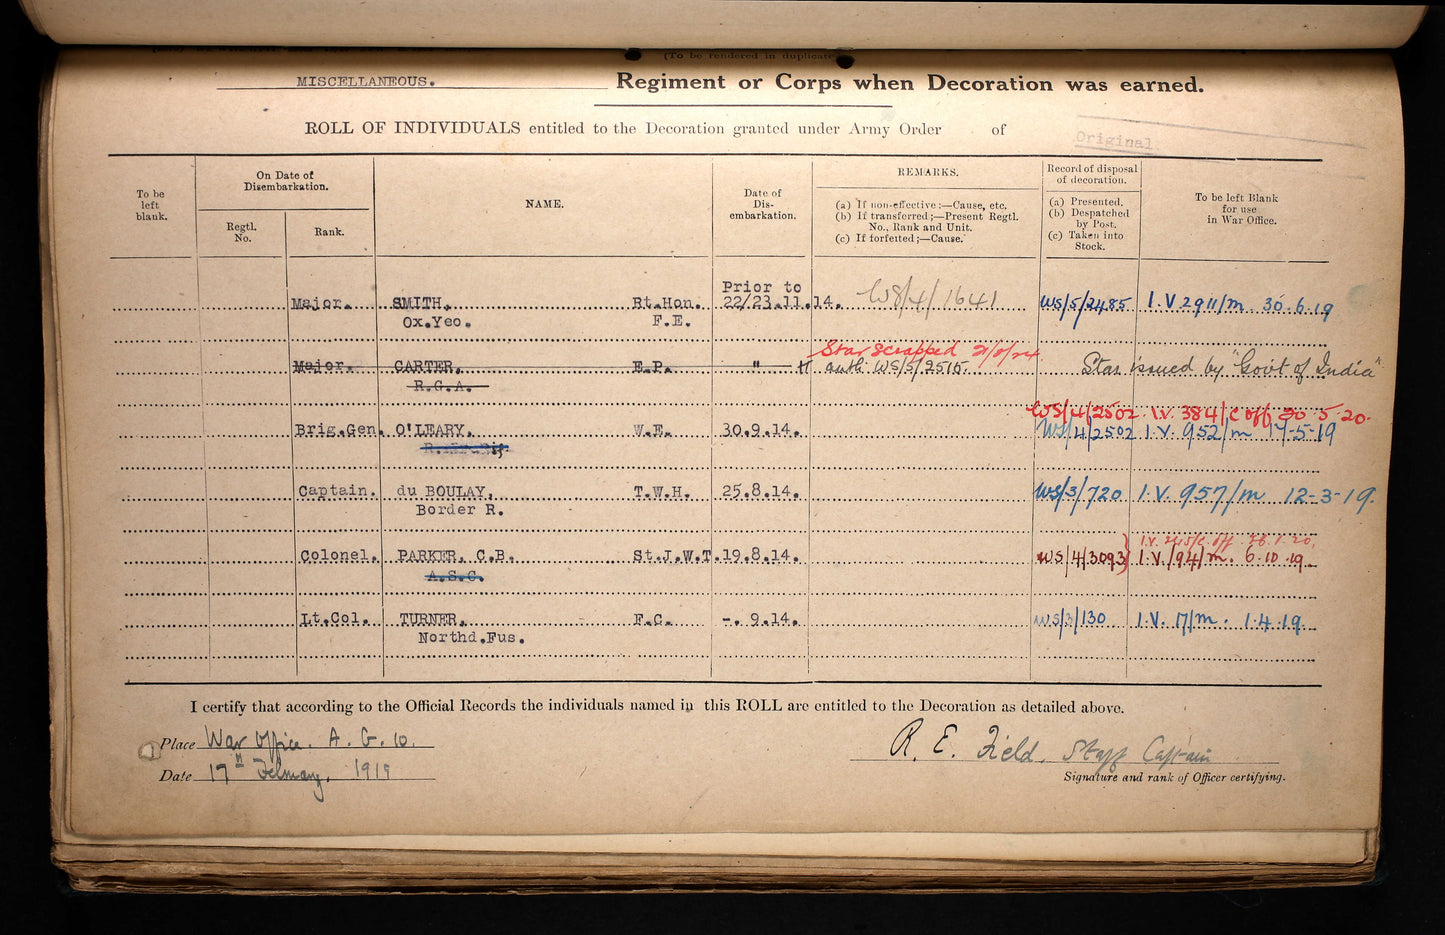 (To be rendered in duplicate
MISCELLANEOUS. Regiment or Corps when Decoration was earned.
ROLL OF INDIVIDUALS entitled to the Decoration granted under Army Order of
Original
To be left blank.
On Date of Disembarkation.
Regtl. No.
Rank.
NAME.
Date of Dis- embarkation.
REMARKS.
(a) If non-effective;—Cause, etc.
(b) If transferred;—Present Regtl. No., Rank and Unit.
(c) If forfeited;—Cause.
Record of disposal of decoration.
(a) Presented.
(b) Despatched by Post.
(c) Taken into Stock.
To be left Blank for use in War Office.
Prior to
Major. SMITH, Rt.Hon. 22/23.11.14. WS/4/1641 WS/5/2485 I.V 2911/m 30.6.19
Ox.Yeo. F.E.
Star scrapped 21/8/24
Major. CARTER, E.P. " " auth: WS/5/2515. Star issued by "Govt of India"
R.G.A.
WS/4/2502 I.V. 384/C off 20.5.20.
Brig.Gen. O'LEARY, W.E. 30.9.14. WS/4/2502 I.V. 952/m 17-5-19
Captain. du BOULAY, T.W.H. 25.8.14. WS/3/720 I.V. 957/m 12-3-19.
Border R.
Colonel. PARKER, C.B. St.J.W.T. 19.8.14. WS/4/3093 I.V./94/m. 6.10.19.
A.S.C.
Lt.Col. TURNER, F.C. -. 9.14. WS/3/130 I.V. 17/m. 1.4.19.
Northd.Fus.
I certify that according to the Official Records the individuals named in this ROLL are entitled to the Decoration as detailed above.
Place War Office. A. G. 10.
R. E. Field. Staff Captain
Date 17th February, 1919
Signature and rank of Officer certifying.